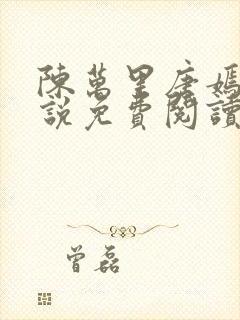 陳萬里唐嫣
說免費閱讀
曾磊